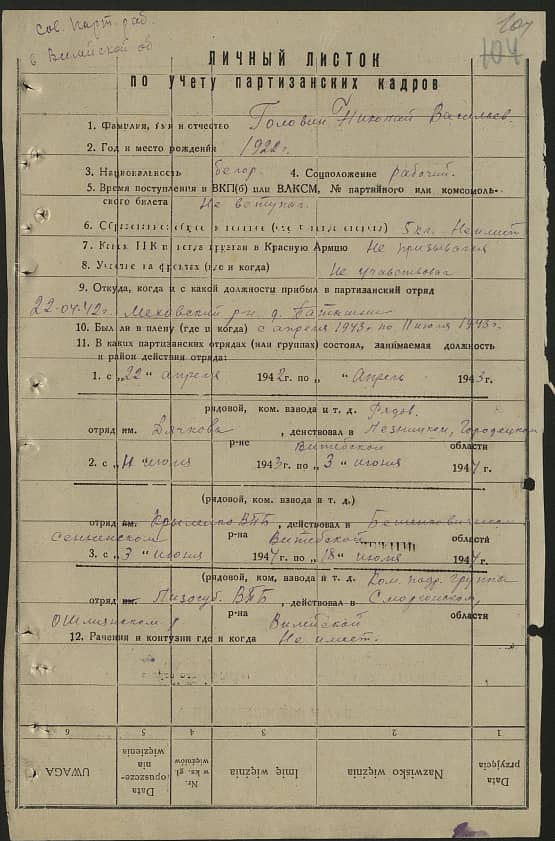 сов. парт. раб.
в Вилейской об
104
104
ЛИЧНЫЙ ЛИСТОК
по учету партизанских кадров
1. Фамилия, имя и отчество Головин Николай Васильев.
2. Год и место рождения 1922 г.
3. Национальность белор. 4. Соцположение рабочий.
5. Время поступления в ВКП(б) или ВЛКСМ, № партийного или комсомоль-
ского билета Не вступал.
6. Образование 5 кл.
7. Каким РВК и когда призван в Красную Армию Не призывался
8. Участие на фронтах (где и когда) Не учавствовал
9. Откуда, когда и с какой должности прибыл в партизанский отряд
22-04-42г. Меховский р-н д.
10. Был ли в плену (где и когда) с апреля 1943г. по 11 июля 1943г.
11. В каких партизанских отрядах (или группах) состоял, занимаемая должность
и район действия отряда:
1. с „22" апреля 1942г. по „ " Апрель 1943г.
рядовой, ком. взвода и т. д. Рядов.
отряд им. Дячкова, действовал в Лезницком, Городецком
р-не Витебской области
2. с „11" июля 1943 г. по „3" июня 1944 г.
(рядовой, ком. взвода и т. д.)
отряд им. ВПБ, действовал в Бешенковичском
Сенненском р-на Витебской области
3. с „3" июня 1944 г. по „18" июля 1944 г.
(рядовой, ком. взвода и т. д. Ком. подр. группы
отряд им. ВПБ, действовал в Сморгонском,
Ошмянском р-на Вилейской области
12. Ранения и контузии где и когда Не имеет.
6 5 4 3 2 1
UWAGA Data opuszcze- nia więzienia Nr. w ks. gł. więźniów Imię więźnia Nazwisko więźnia Data przyjęcia